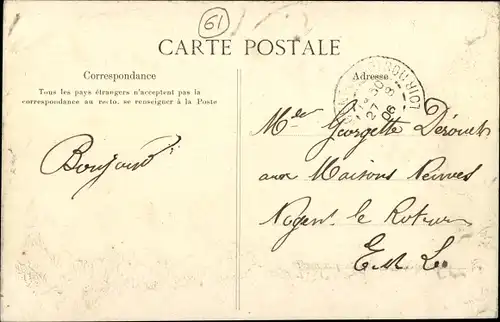 61
CARTE POSTALE
Correspondance
Tous les pays étrangers n'acceptent pas la
correspondance au recto. se renseigner à la Poste
Bonjour
Adresse
27 8
06
Mlle Georgette
aux Maisons Neuves
Nogent le Rotrou
E et L